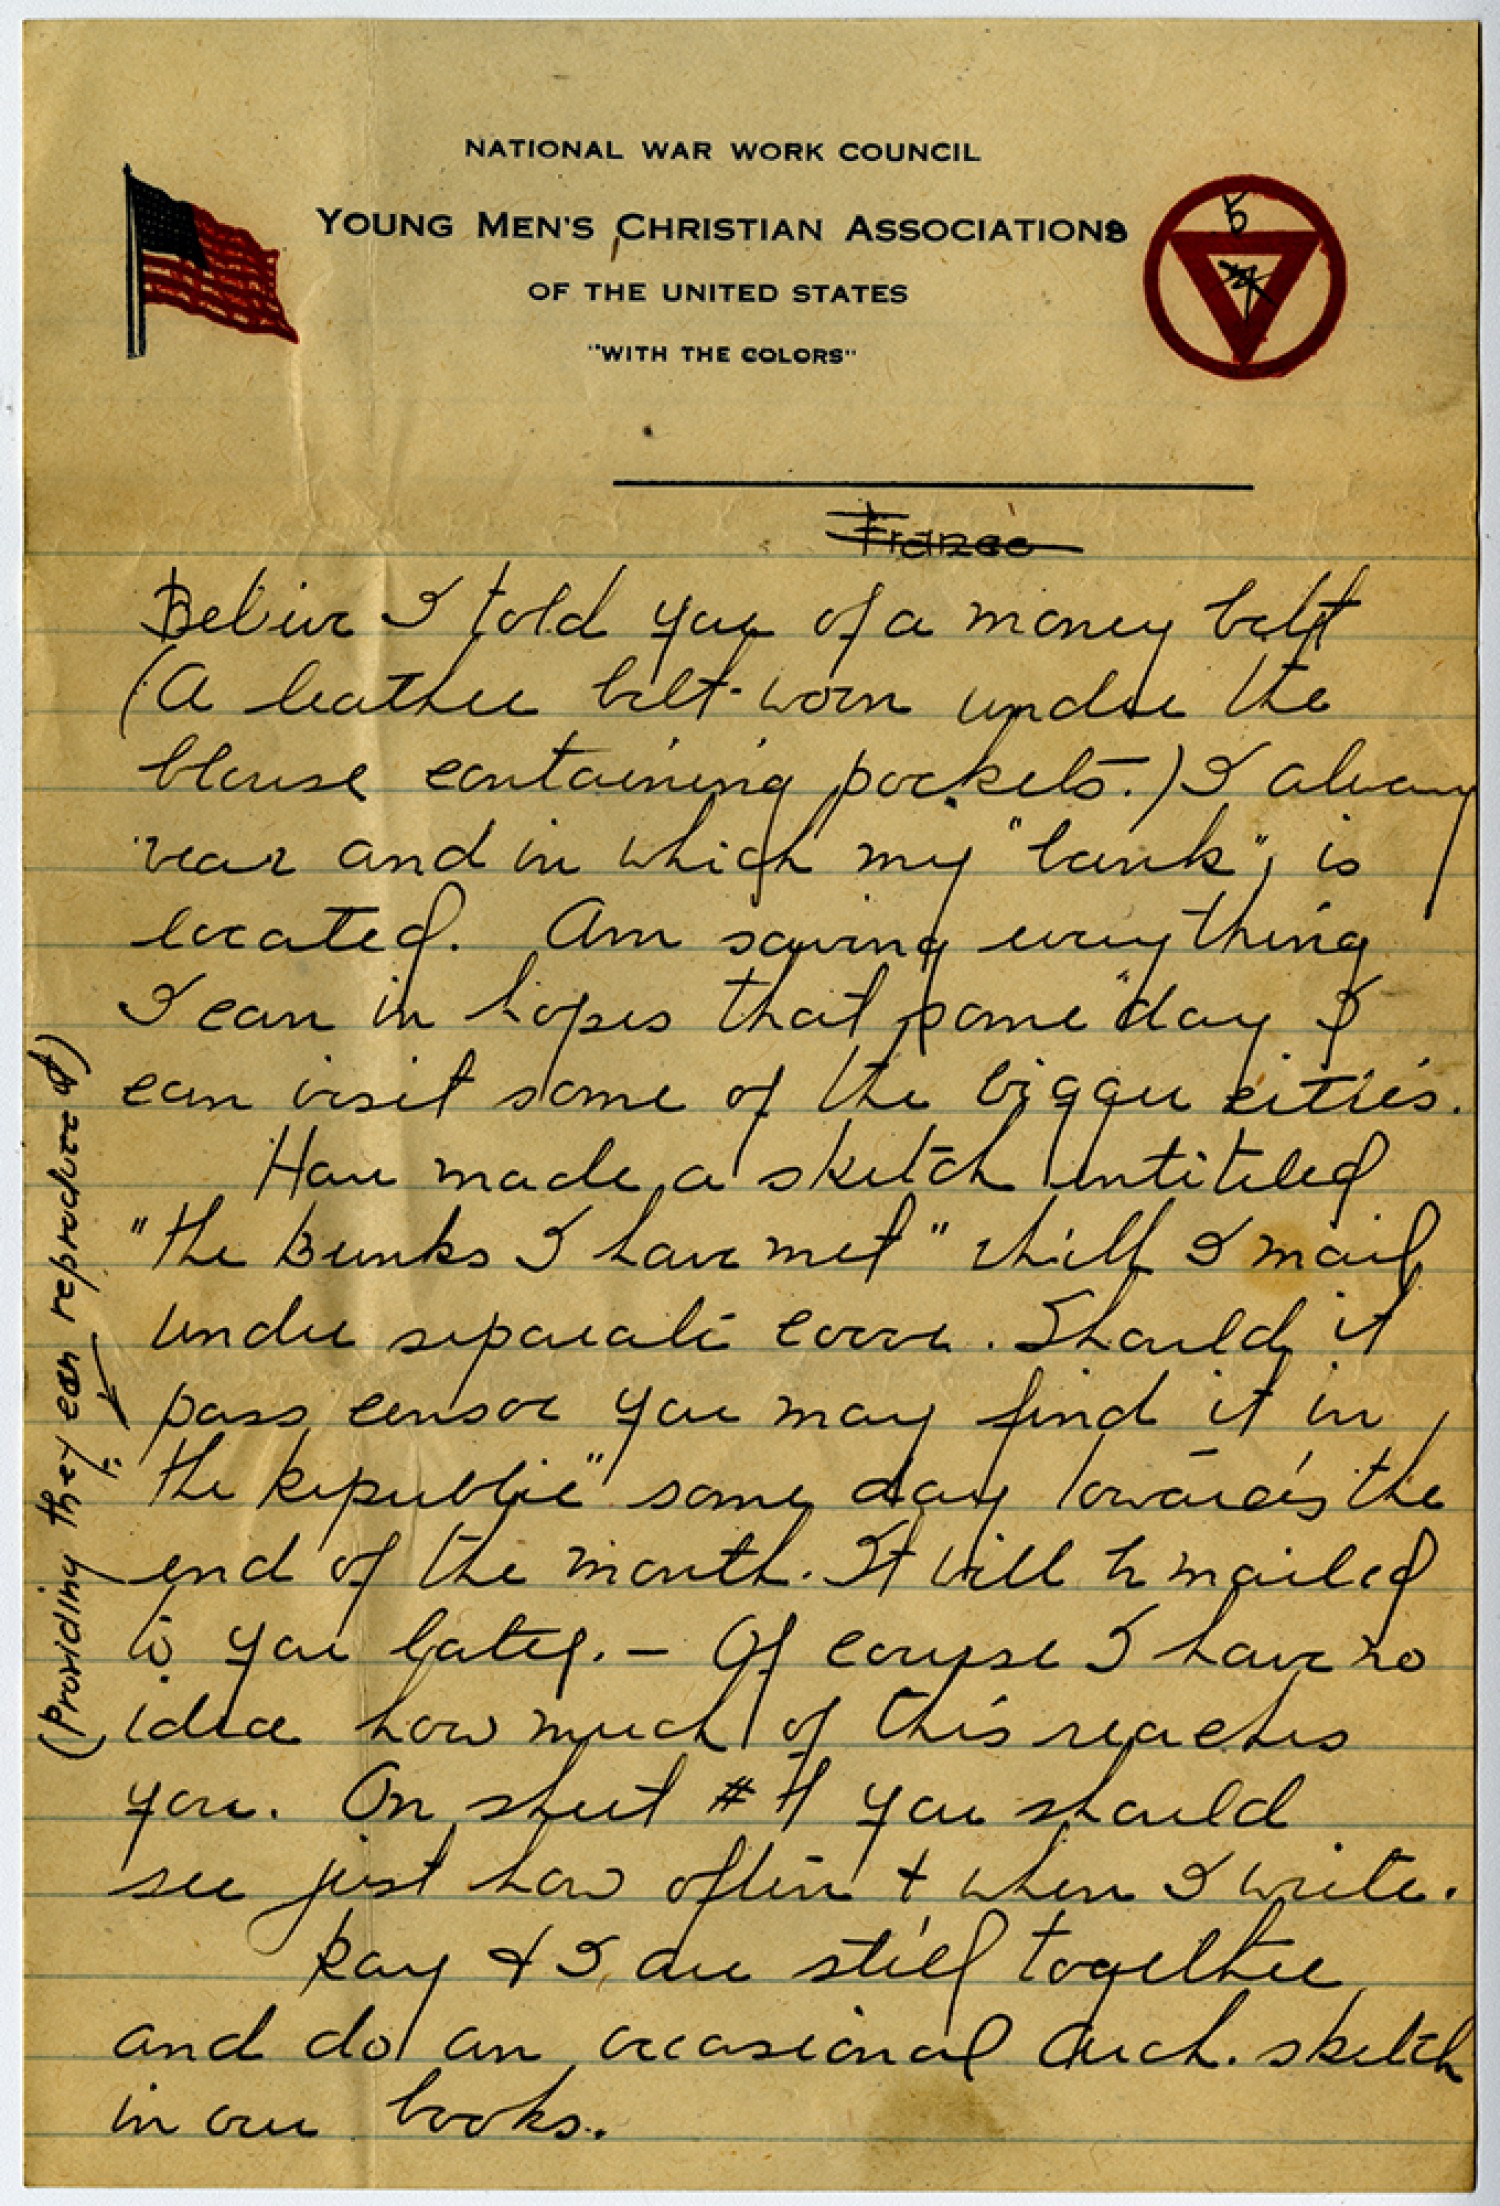 NATIONAL WAR WORK COUNCIL
YOUNG MEN'S CHRISTIAN ASSOCIATIONS
OF THE UNITED STATES
"WITH THE COLORS"
5
4
France
Believe I told you of a money belt
(A leather belt - worn under the
blouse containing pockets.) I always
wear and in which my "bank" is
located. Am saving everything
I can in hopes that some "day I
can visit some of the bigger cities.
Have made a sketch entitled
"the Bunks I have met" which I mail
under separate cover. Should it
pass censor you may find it in
"the Republic" some day towards the
end of the month. It will be mailed
to you later. – Of course I have no
idea how much of this reaches
you. On sheet # you should
see just how often + when I write.
Ray & I are still together
and do an occasional Arch. sketch
in our books.
(Providing they can reproduce it)